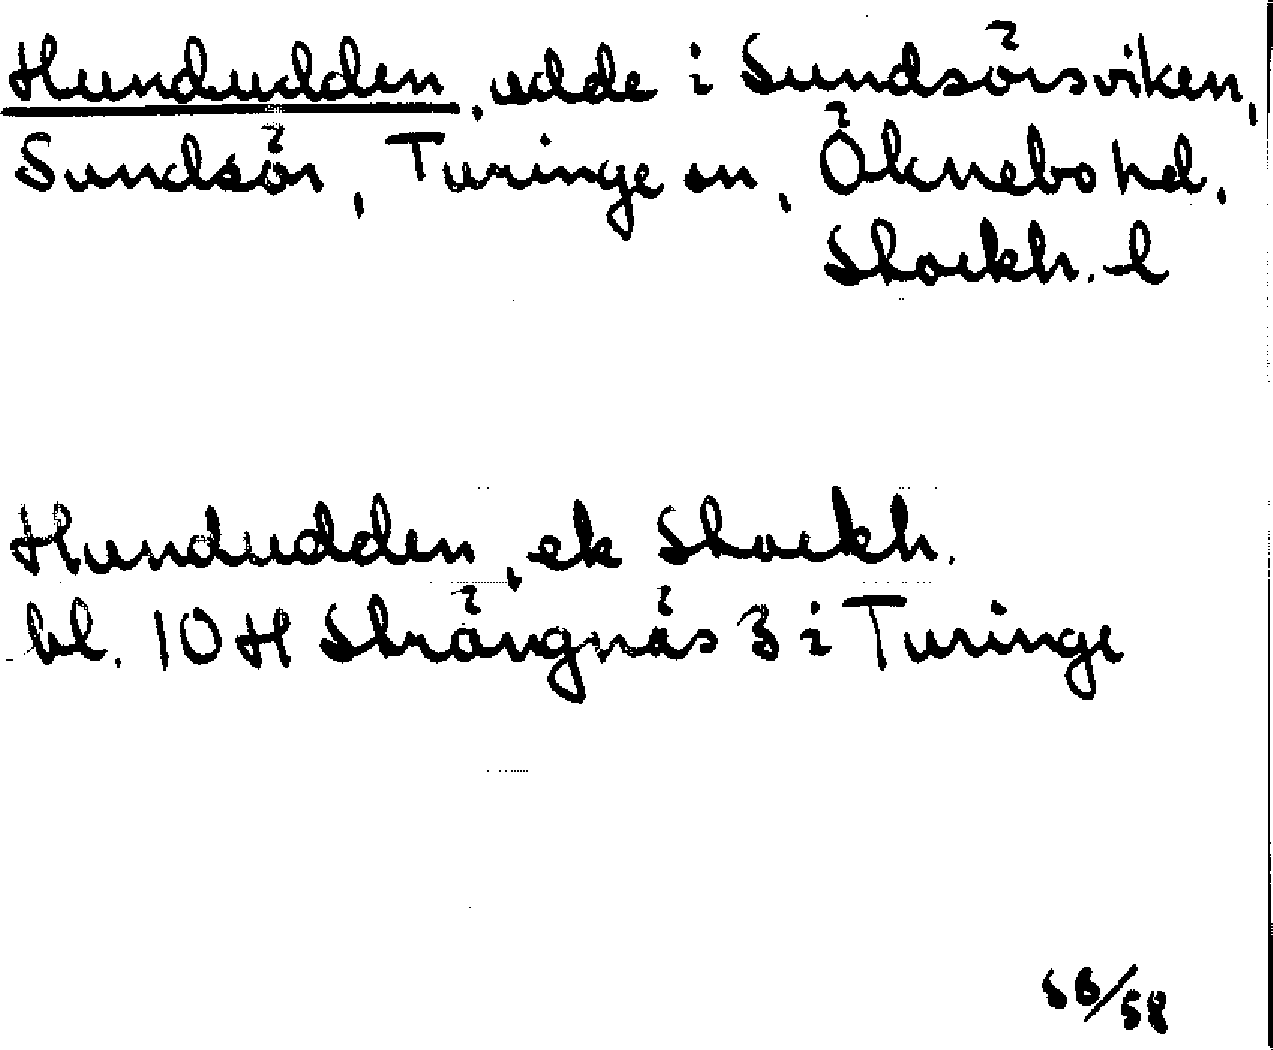 Hundudden, udde i Sundsörsviken,
Sundsör, Turinge sn, Öknebo hd.
Stockh. l
Hundudden, ek Stockh.
bl. 10 H Strängnäs 3 i Turinge